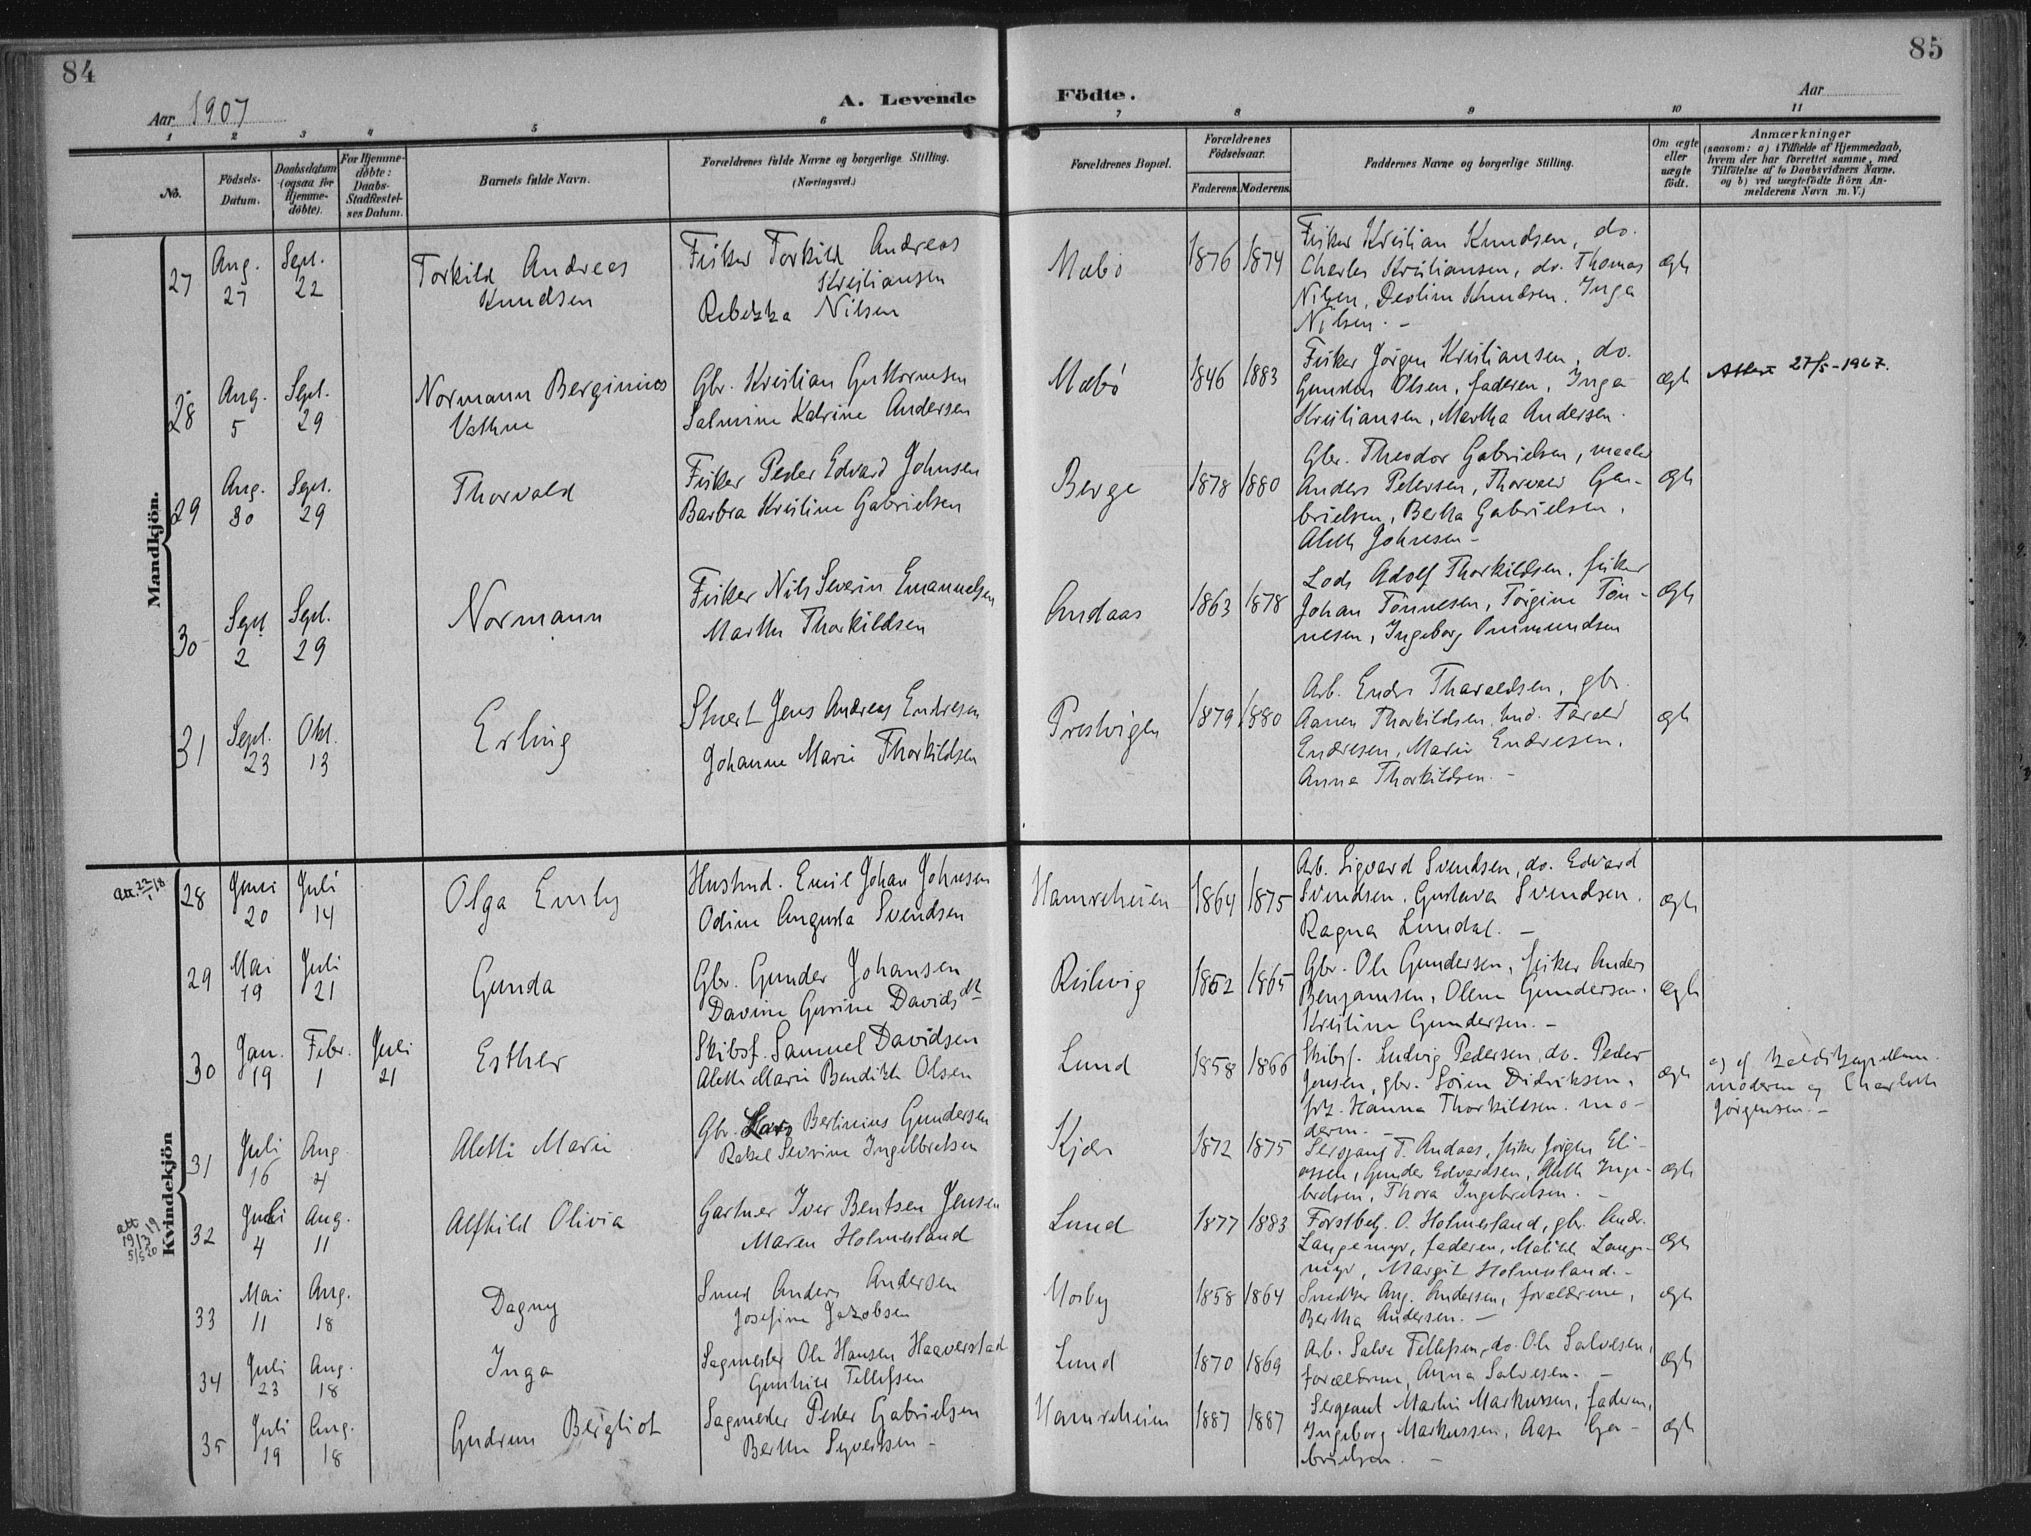 84
85
Aar 1907
A. Levende Födte.
Aar
1 2 3 4 5 6 7 8 9 10 11
No.
Födsels-Datum.
Daabsdatum (ogsaa for Hjemme-döbte).
For Hjemme-döbte: Daabs-Stadfæstel-ses Datum.
Barnets fulde Navn.
Forældrenes fulde Navne og borgerlige Stilling. (Næringsvei.)
Forældrenes Bopæl.
Forældrenes Födselsaar.
Faderens. Moderens.
Faddernes Navne og borgerlige Stilling.
Om ægte eller uægte födt.
Anmærkninger
(saasom: a) i Tilfælde af Hjemmedaab, hvem der har forrettet samme, med Tilföielse af to Daabsvidners Navne, og b) ved uægtefödte Börn An-melderens Navn m. V.)
Mandkjön.
27 Aug. 27 Sept. 22
Torkild Andreas
Knudsen
Fisker Torkild Andreas
Kristiansen
Rebekka Nilsen
Mæbö 1876 1874
Fisker Kristian Knudsen, do.
Charles Kristiansen, do. Thomas
Nilsen, Knudsen, Inga
Nilsen. –
ægte
28 Aug. 5 Sept. 29
Normann Berginius
Vathne
Gbr. Kristian Guttormsen
Salmine Katrine Andersen
Mæbö 1846 1883
Fisker Jörgen Kristiansen, do.
Olsen, faderen, Inga
Kristiansen, Martha Andersen.
ægte
Attest 27/5-1967.
29 Aug. 30 Sept. 29
Thorvald
Fisker Peder Edvard Johnsen
Barbra Kristine Gabrielsen
Berge 1878 1880
Gbr. Theodor Gabrielsen, maaler
Anders Petersen, Thorvald Ga-
brielsen, Berta Gabrielsen,
Aleth Johnsen –
ægte
30 Sept 2 Sept. 29
Normann
Fisker Nils Severin Emanuelsen
Marthe Thorkildsen
Andaas 1863 1878
Lods Adolf Thorkildsen, fisker
Johan Tönnesen, Törgine Tön-
nesen, Ingeborg Ommundsen
ægte
31 Sept. 23 Okt. 13
Erling
Stuert Jens Andreas Endresen
Johanne Marie Thorkildsen
Prestvigen 1879 1880
Arb. Endre Tharaldsen, gbr.
Aanen Thorkildsen, Tarald
Endresen, Marie Endresen,
Anna Thorkildsen. –
ægte
Kvindekjön
Att. 22/1 18
28 Juni 20 Juli 14
Olga Emly
Husmd. Emil Johan Johnsen
Odine Augusta Svendsen
Hamreheien 1864 1875
Arb. Sigvard Svendsen, do. Edvard
Svendsen, Gustava Svendsen,
Ragna Lundal. –
ægte
29 Mai 19 Juli 21
Gunda
Gbr. Gunder Johansen
Davine Gurine Davidsdt
1862 1865
Gbr. Ole Gundersen, fisker Anders
Benjamsen, Olene Gundersen,
Kristine Gundersen. –
ægte
30 Jan. 19 Febr. 1 Juli 21
Esther
Skibsf. Samuel Davidsen
Aleth Marie Bendikte Olsen
Lund 1858 1866
Skibsf. Ludvig Pedersen, do. Peder
Jensen, gbr. Sören Didriksen,
frk. Hanna Thorkildsen. mo-
deren. –
ægte
a) af
moderen og Charlotte
Jörgensen. –
31 Juli 16 Aug 4
Aletti Marie
Gbr. Lars Berlinius Gundersen
Rakel Severine Ingelbretsen
Kjær 1872 1875
Sergeant T. Andaas, fisker Jörgen Eli-
assen, Gunder Edvardsen, Aleth Inge-
bretsen, Thora Ingebretsen. –
ægte
att 19/3 19
5/5 20
32 Juli 4 Aug. 11
Alfhild Olivia
Gartner Iver Bentsen Jensen
Maren Holmesland
Lund 1877 1883
Forstbetj. O. Holmesland, gbr. Andr.
Langemyr, faderen, Matilde Lange-
myr, Margit Holmesland. –
ægte
33 Mai 11 Aug. 18
Dagny
Smed Anders Andersen
Josefine Jakobsen
Mosby 1858 1864
Aug. Andersen, forældrene,
Bertha Andersen. –
ægte
34 Juli 23 Aug. 18
Inga
Sagmester Ole Hansen Haaverstad
Gunhild Tellefsen
Lund 1870 1869
Arb. Salve Tellefsen, do. Ole Salvesen,
forældrene, Anna Salvesen. –
ægte
35 Juli 19 Aug. 18
Gudrun Bergliot
Sagmester Peder Gabrielsen
Berthe Syvertsen –
Hamreheien 1887 1887
Sergeant Martin Markussen, faderen,
Ingeborg Markussen, Aase Ga-
brielsen. –
ægte